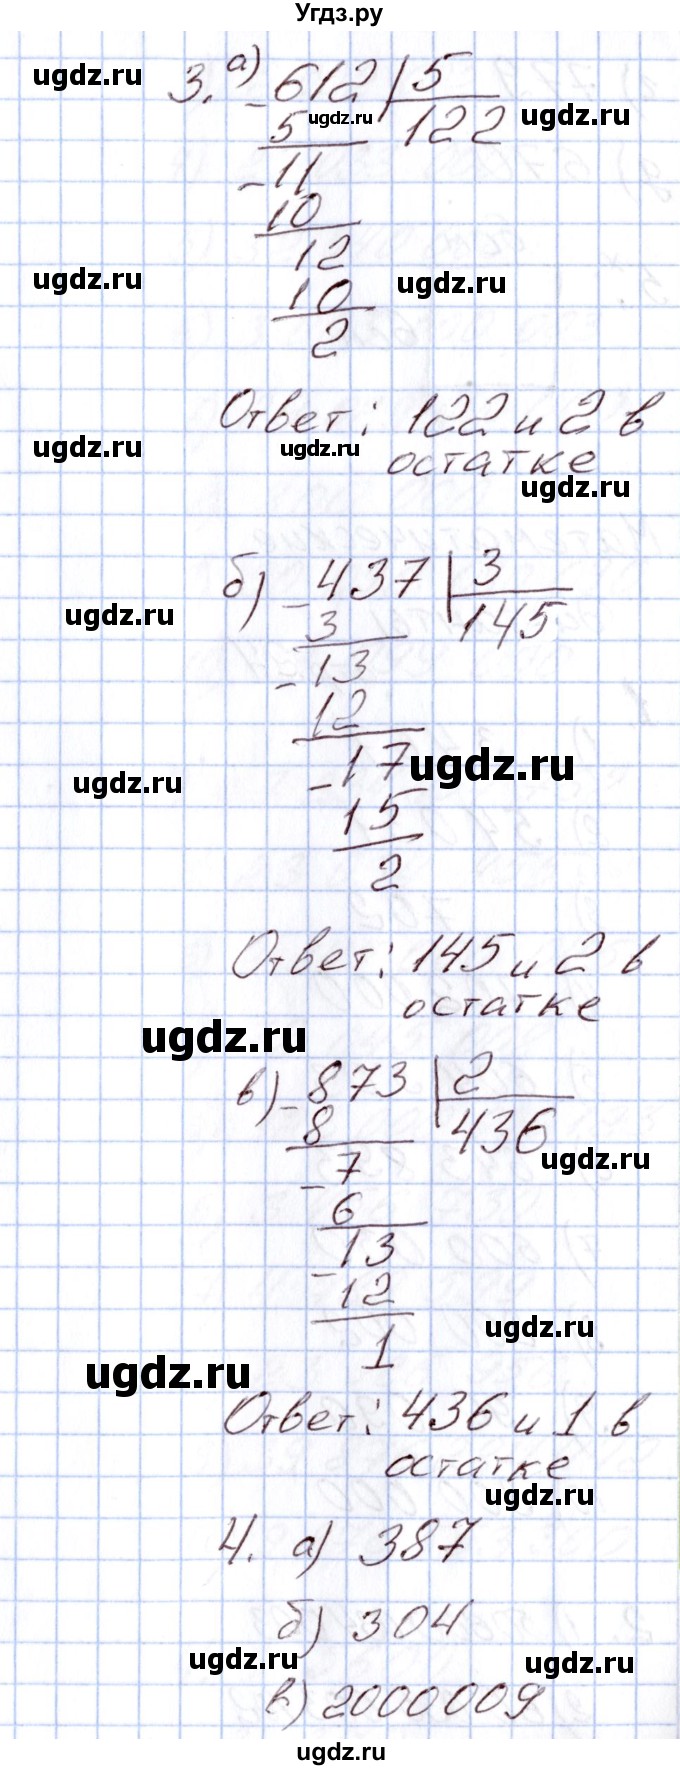 Угдз.ру
ugdz.ru
3. а) - 612 | 5
ugdz.ru ugdz.ru
5 122
- 11
10
12
ugdz.ru ugdz.ru
10
2
Ответ: 122 и 2 в
ugdz.ru ugdz.ru
остатке
ugdz.ru
б) - 437 | 3
ugdz.ru
3 145
- 13
12
- 17 ugdz.ru
ugdz.ru
15
2
Ответ: 145 и 2 в
остатке
ugdz.ru
в) - 873 | 2
8 436
ugdz.ru
- 7
6
- 13
12
ugdz.ru
1
ugdz.ru
Ответ: 436 и 1 в
остатке
ugdz.ru
4. а) 387
б) 304
ugdz.ru ugdz.ru
в) 2000009
ugdz.ru